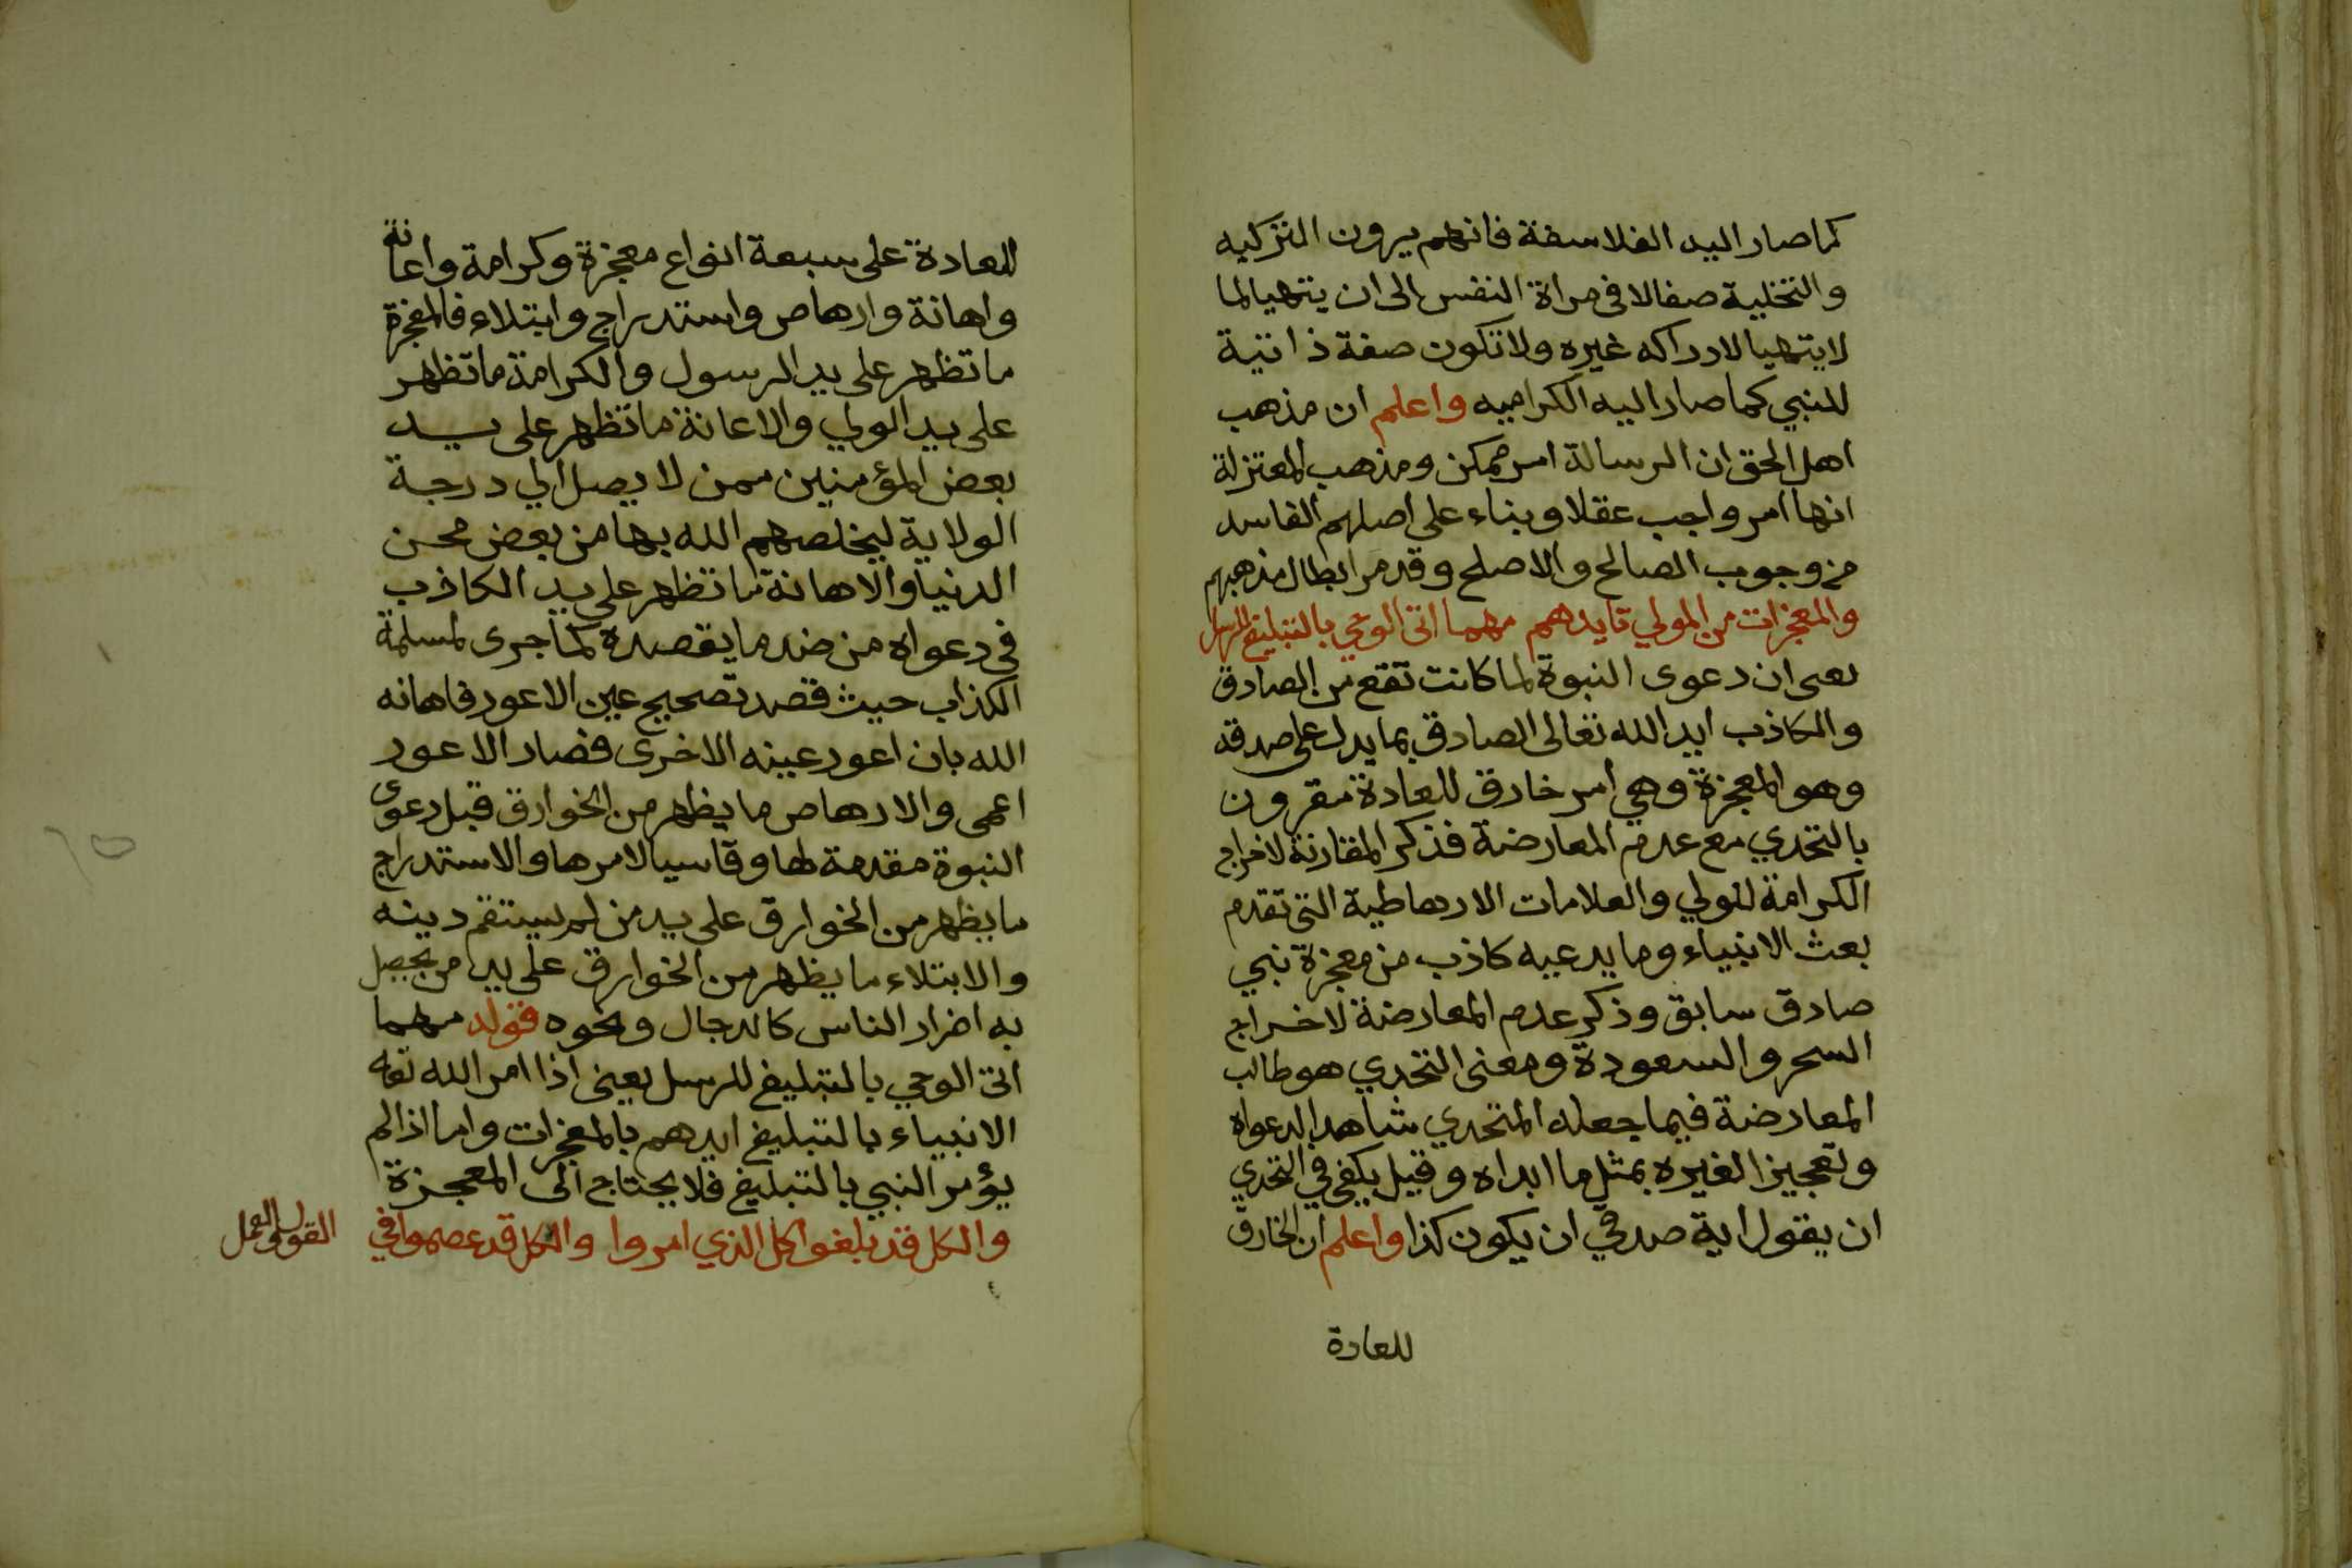 كما صار اليه الفلاسفة فانهم يرون التزكيه
والتخلية صفالا في مراة النفس الى ان يتهيا لما
لا يتهيا لادراكه غيره ولا تكون صفة ذاتية
للنبي كما صار اليه الكراميه واعلم ان مذهب
اهل الحق ان الرسالة امر ممكن ومذهب المعتزلة
انها امر واجب عقلا وبناء على اصلهم الفاسد
من وجوب الصالح والاصلح وقد مر ابطال مذهبهم
والمعجزات من المولي تايدهم مهما اتى الوحي بالتبليغ للرسل
يعني ان دعوى النبوة لما كانت تقع من الصادق
والكاذب ايد الله تعالى الصادق بما يدل على صدقه
وهو المعجزة وهي امر خارق للعادة مقرون
بالتحدي مع عدم المعارضة فذكر المقارنة لاخراج
الكرامة للولي والعلامات الارهاطية التي تقدم
بعث الانبياء وما يدعيه كاذب من معجزة نبي
صادق سابق وذكر عدم المعارضة لاخراج
السحر والسعودة ومعنى التحدي هو طالب
المعارضة فيما جعله المتحدي شاهدا لدعواه
وتعجيز الغيره بمثل ما ابداه وقيل يكفي في التحدي
ان يقول اية صدقي ان يكون كذا واعلم ان الخارق
للعادة
للعادة على سبعة انواع معجزة وكرامة واعانة
واهانة وارهاص واستدراج وابتلاء فالمعجزة
ما تظهر على يد الرسول والكرامة ما تظهر
على يد الولي والاعانة ما تظهر على يد
بعض المؤمنين ممن لا يصل الي درجة
الولاية ليخلصهم الله بها من بعض محن
الدنيا والاهانة ما تظهر على يد الكاذب
في دعواه من ضد ما يقصده كما جرى لمسلمة
الكذاب حيث قصد تصحيح عين الاعور فاهانه
الله بان اعور عينه الاخرى فصار الاعور
اعمى والارهاص ما يظهر من الخوارق قبل دعوى
النبوة مقدمة لها وتاسيا لامرها والاستدراج
ما يظهر من الخوارق على يد من لم يستقم دينه
والابتلاء ما يظهر من الخوارق على يد من يحصل
به اضرار الناس كالدجال ونحوه فقوله مهما
اتى الوحي بالتبليغ للرسل يعني اذا امر الله تعه
الانبياء بالتبليغ ايدهم بالمعجزات واما اذا لم
يؤمر النبي بالتبليغ فلا يحتاج الى المعجزة
والكل قد بلغوا كل الذي امروا والكل قد عصموا في القول والعمل